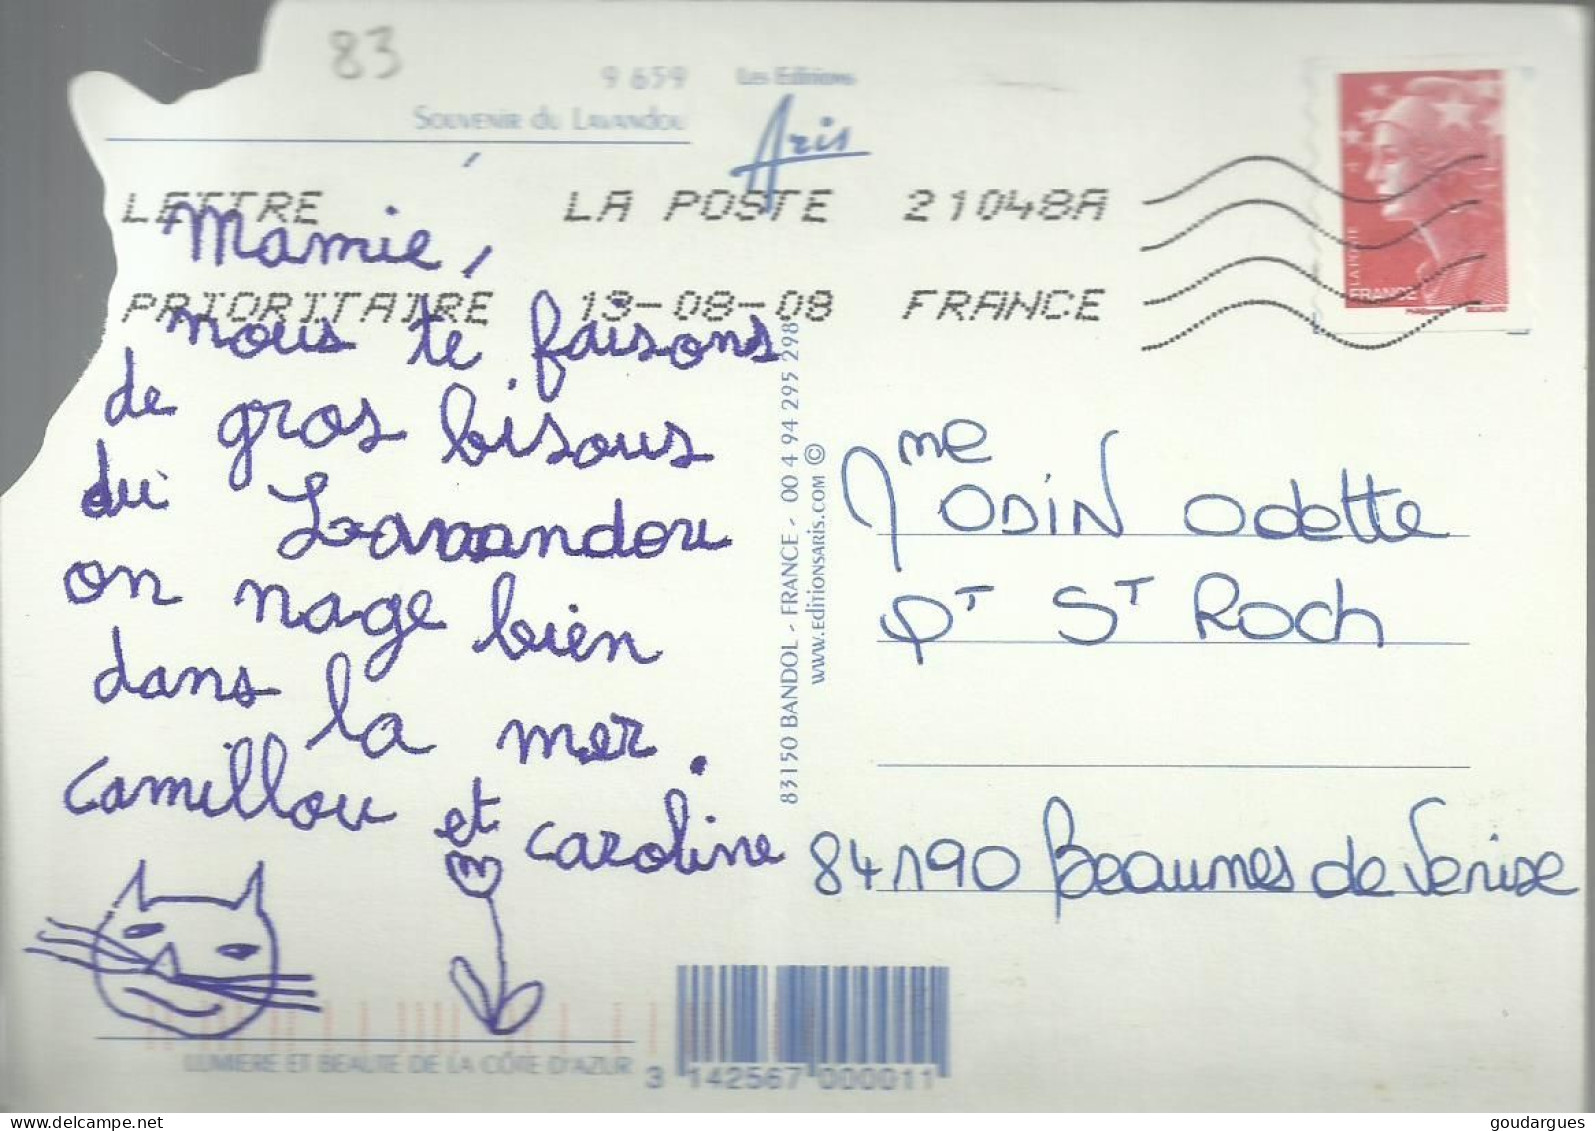 83
9 659
Les Editions
Aris
Souvenir du Lavandou
LETTRE LA POSTE 21048A
PRIORITAIRE 13-08-08 FRANCE
LA POSTE
FRANCE
Mamie,
nous te faisons
de gros bisous
du Lavandou
on nage bien
dans la mer.
camillou et caroline
83150 BANDOL - FRANCE - 00 4 94 295 298
WWW.EDITIONSARIS.COM ©
Mme ODIN Odette
Qt St Roch
84190 Beaumes de Venise
LUMIERE ET BEAUTE DE LA CÔTE D'AZUR
3 142567 000011
goudargues